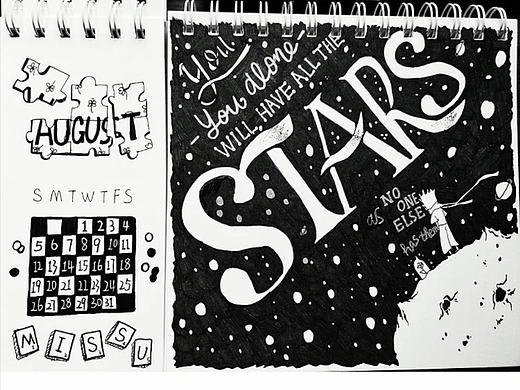 AUGUST
S M T W T F S
1 2 3 4
5 6 7 8 9 10 11
12 13 14 15 16 17 18
19 20 21 22 23 24 25
26 27 28 29 30 31
M I S S U
You
-You alone-
WILL HAVE ALL THE
STARS
as NO
ONE
ELSE
has them